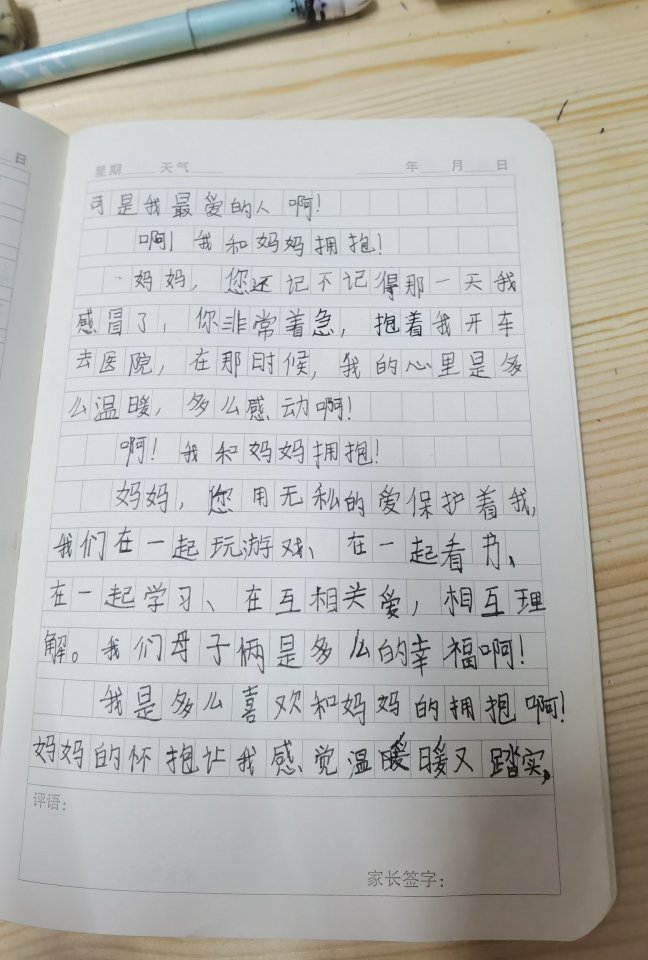 日
星期 天气 年 月 日
可是我最爱的人啊!
啊!我和妈妈拥抱!
妈妈,您还记不记得那一天我
感冒了,你非常着急,抱着我开车
去医院,在那时候,我的心里是多
么温暖,多么感动啊!
啊!我和妈妈拥抱!
妈妈,您用无私的爱保护着我,
我们在一起玩游戏、在一起看书、
在一起学习、在互相关爱,相互理
解。我们母子俩是多么的幸福啊!
我是多么喜欢和妈妈的拥抱啊!
妈妈的怀抱让我感觉温暖暖又踏实,
评语:
家长签字: